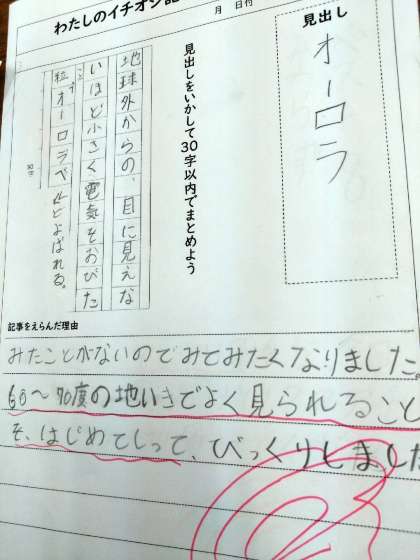 わたしのイチオシ記
月 日付
見出し
オーロラ
見出しをいかして30字以内でまとめよう
地球外からの、目に見えな
いほど小さく電気をおびた
粒オーロラべ
とよばれる。
記事をえらんだ理由
みたことがないのでみてみたくなりました。
60〜70度の地いきでよく見られること
を、はじめてしって、びっくりしました